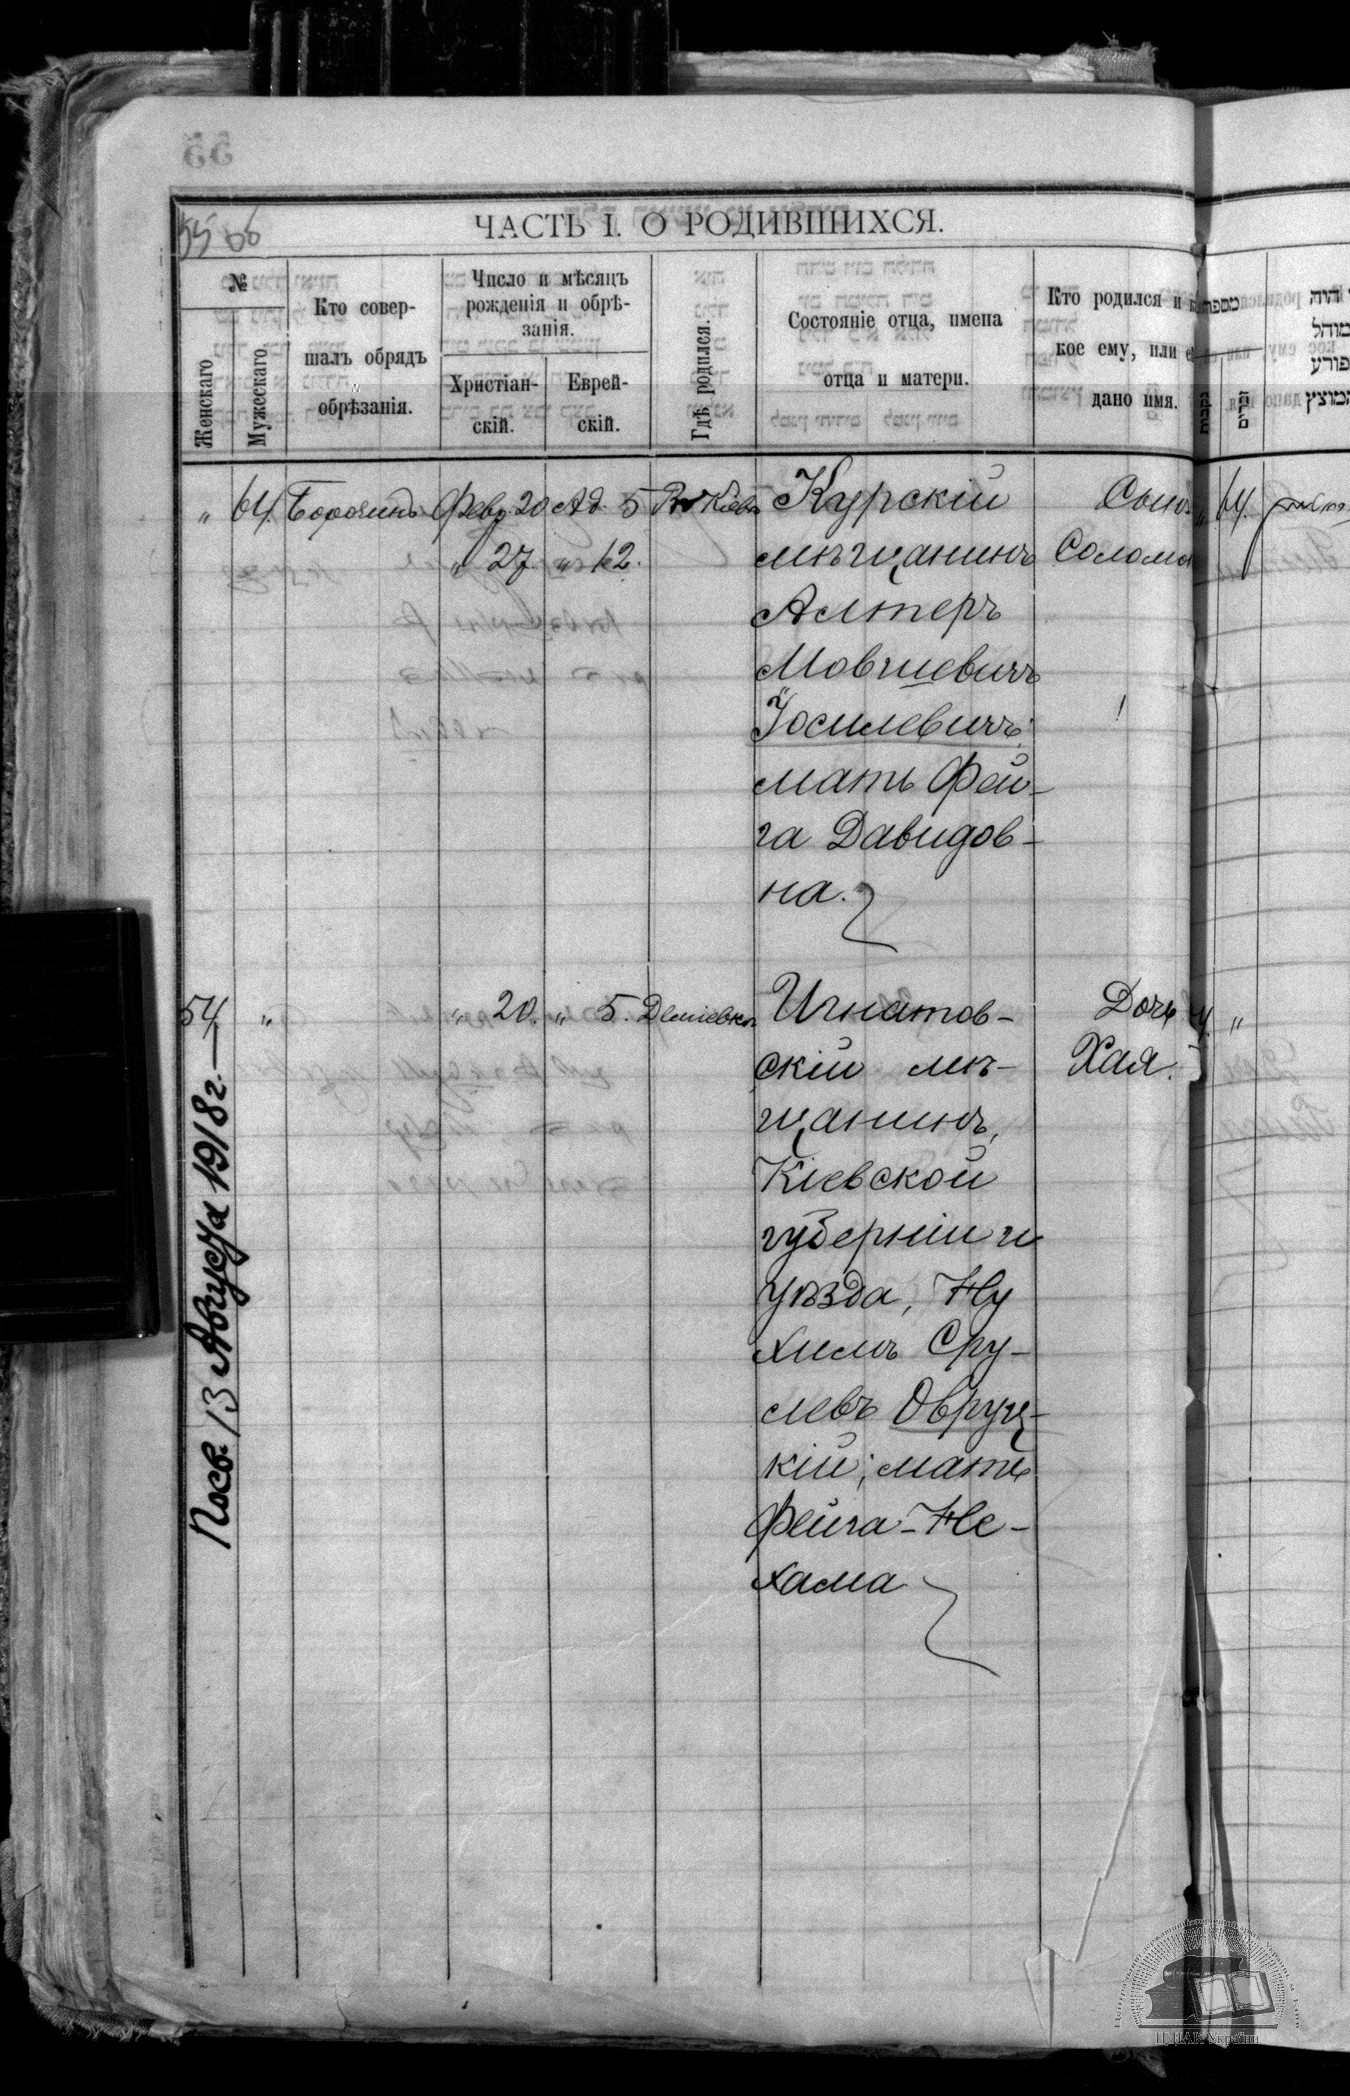 ЧАСТЬ I. О РОДИВШИХСЯ.
№
Женскаго
Мужескаго
Кто совер-
шалъ обрядъ
обрѣзанія.
Число и мѣсяцъ
рожденія и обрѣ-
занія.
Христіан-
скій.
Еврей-
скій.
Гдѣ родился.
Состояніе отца, имена
отца и матери.
Кто родился и
кое ему, или
дано имя.
" 64. Февр. 20 Ад. 5 Въ Кіевѣ Курскій Сынъ
" 27. " 12. мѣщанинъ Соломо
Алтеръ
Мовшевичъ
Іосилевичъ;
мать Фей-
га Давидов-
на.
54 " " 20. " 5. Деміевка Игнатов- Дочь
скій мѣ- Хая.
щанинъ,
Кіевской
губерніи и
уѣзда, Ну
химъ Сру-
левъ Овруц-
кій; мать
Фейга-Не-
хама
Посв. 13 Августа 1918 г.
ЦДІАК України